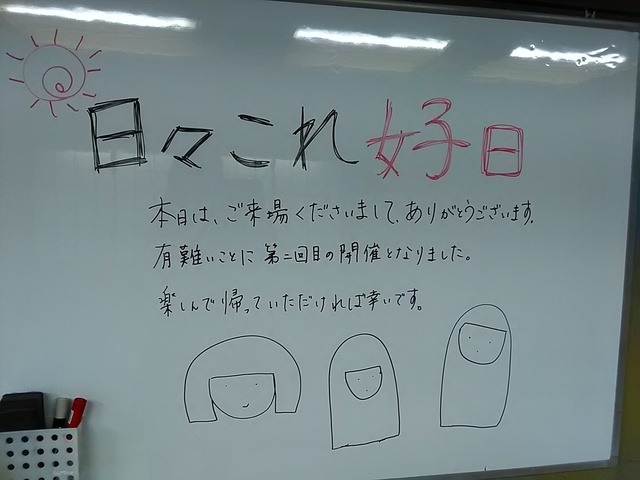 日々これ好日
本日は、ご来場くださいまして、ありがとうございます。
有難いことに第二回目の開催となりました。
楽しんで帰っていただければ幸いです。